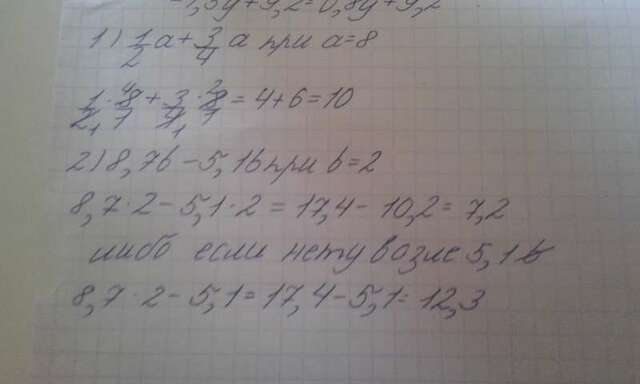 -1,3y+9,2=0,8y+9,2
1) 1/2 a + 3/4 a при a=8
1/2 · 8/1 + 3/4 · 8/1 = 4+6=10
2) 8,7b - 5,1b при b=2
8,7 · 2 - 5,1 · 2 = 17,4 - 10,2 = 7,2
либо если нету возле 5,1 b
8,7 · 2 - 5,1 = 17,4 - 5,1 = 12,3